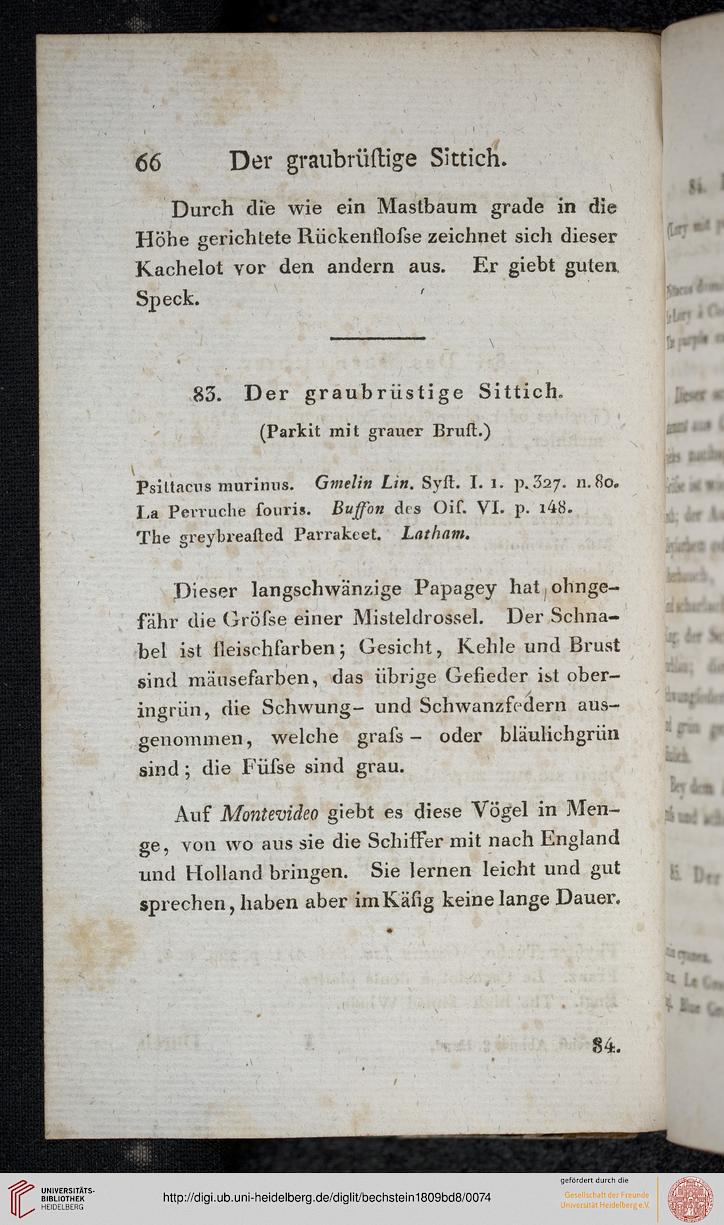 66 Der graubrüſtige Sittich.
Durch die wie ein Mastbaum grade in die
Höhe gerichtete Rückenfloſse zeichnet sich dieser
Kachelot vor den andern aus. Er giebt guten
Speck.
83. Der graubrüstige Sittich.
(Parkit mit grauer Bruſt.)
Psittacus murinus. Gmelin Lin. Syſt. I. 1. p. 327. n. 80.
La Perruche ſouris. Buffon des Oiſ. VI. p. 148.
The greybreaſted Parrakeet. Latham.
Dieser langschwänzige Papagey hat ohnge-
fähr die Gröſse einer Misteldrossel. Der Schna-
bel ist fleischfarben; Gesicht, Kehle und Brust
sind mäusefarben, das übrige Gefieder ist ober-
ingrün, die Schwung- und Schwanzfedern aus-
genommen, welche graſs- oder bläulichgrün
sind; die Füſse sind grau.
Auf Montevideo giebt es diese Vögel in Men-
ge, von wo aus sie die Schiffer mit nach England
und Holland bringen. Sie lernen leicht und gut
sprechen, haben aber im Käfig keine lange Dauer.
84.
UNIVERSITÄTS-
BIBLIOTHEK
HEIDELBERG
http://digi.ub.uni-heidelberg.de/diglit/bechstein1809bd8/0074
gefördert durch die
Gesellschaft der Freunde
Universität Heidelberg e.V.